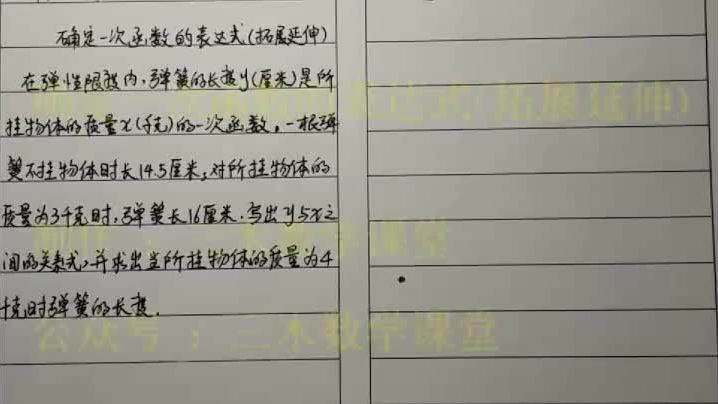 确定一次函数的表达式(拓展延伸)
在弹性限度内,弹簧的长度y(厘米)是所
挂物体的质量x(千克)的一次函数,一根弹
簧不挂物体时长14.5厘米;对所挂物体的
质量为3千克时,弹簧长16厘米.写出y与x之
间的关系式,并求出当所挂物体的质量为4
千克时弹簧的长度.
确定一次函数的表达式(拓展延伸)
制作:三木数学课堂
公众号:三木数学课堂